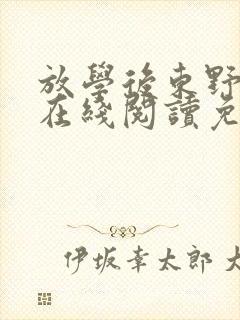 放學後東野
在綫閱讀免
伊坂幸太郎 大